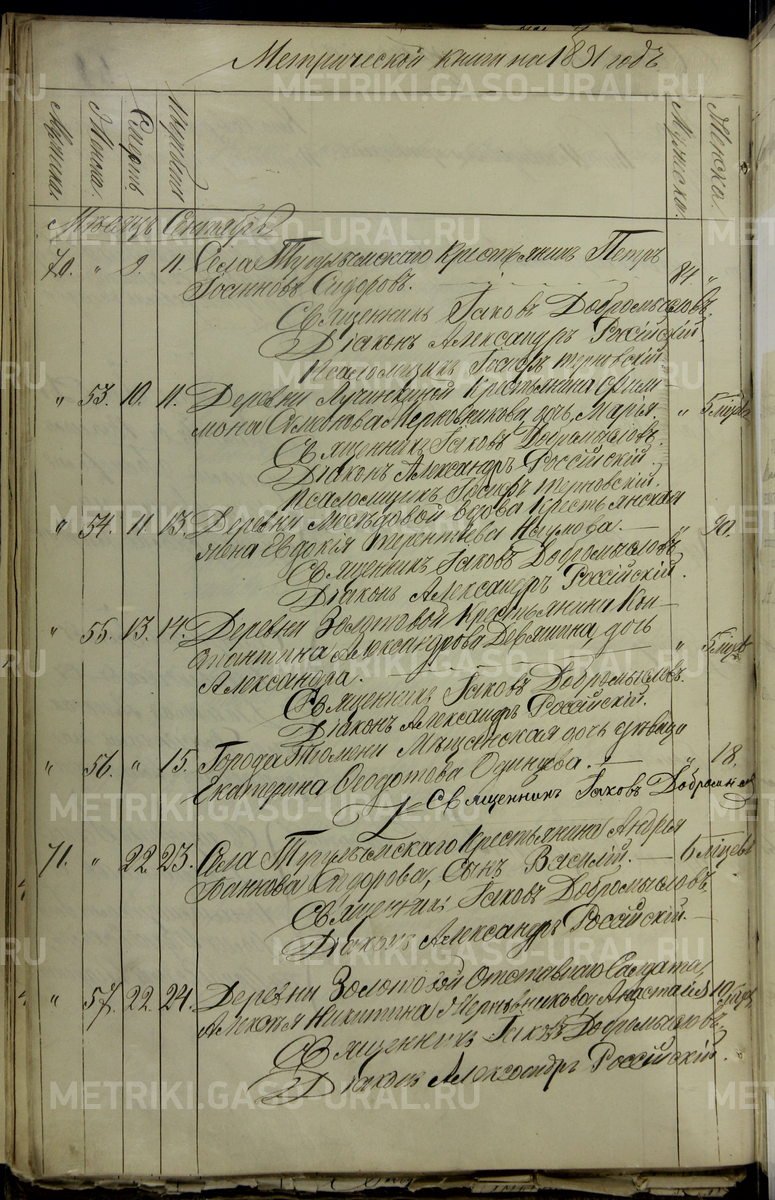 Метрической книги на 1881 годъ
Мужска. Женска. Смерть Погребен Мужска. Женска.
Мѣсяцъ Сентябрь
70. " 9. 11. Села Тугулымскаго Крестьянинъ Петръ
Іоанновъ Сидоровъ. 84 "
Священникъ Іаковъ Добромысловъ.
Діаконъ Александръ Россійскій.
Псаломщикъ Іоаннъ Терновскій
" 53. 10. 11. Деревни Лучинкиной Крестьянина Фили-
мона Семенова Мерновникова дочь, Марья. "
Священникъ Іаковъ Добромысловъ.
Діаконъ Александръ Россійскій.
Псаломщикъ Іоаннъ Терновскій.
" 54. 11. 13. Деревни вдова Крестьянская
жена Евдокія Терентьева Наумова. " 90.
Священникъ Іаковъ Добромысловъ
Діаконъ Александръ Россійскій.
" 55. 13. 14. Деревни Золотовой Крестьянина Кон-
стантина Александрова дочь "
Александра.
Священникъ Іаковъ Добромысловъ.
Діаконъ Александръ Россійскій.
" 56. " 15. Города Тюмени Мѣщанская дочь дѣвица
Екатерина Ѳеодотова Одинцева. " 18.
Священникъ Іаковъ Добромысловъ
71. " 22. 23. Села Тугулымскаго Крестьянина Андрея
Іоаннова Сидорова, Сынъ Василій. 6 мѣсяцевъ
Священникъ Іаковъ Добромысловъ.
Діаконъ Александръ Россійскій.
" 57. 22. 24. Деревни Золотовой Отставнаго Солдата
Алексѣя Никитина Анастасія
Священникъ Іаковъ Добромысловъ.
Діаконъ Александръ Россійскій.
METRIKI.GASO-URAL.RU